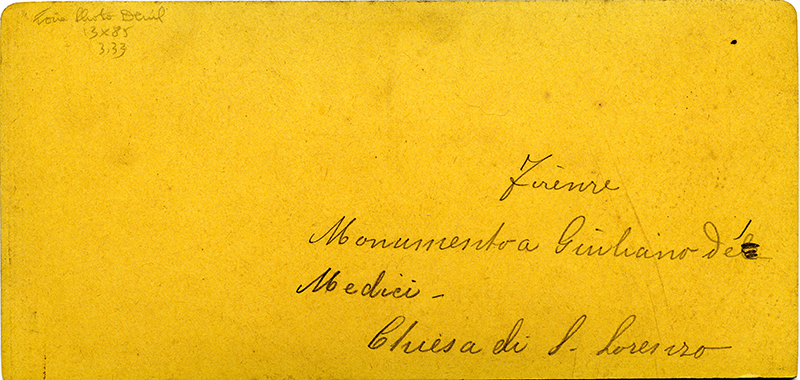 Photo
13x85
3,33
Firenze
Monumento a Giuliano de'
Medici -
Chiesa di S. Lorenzo